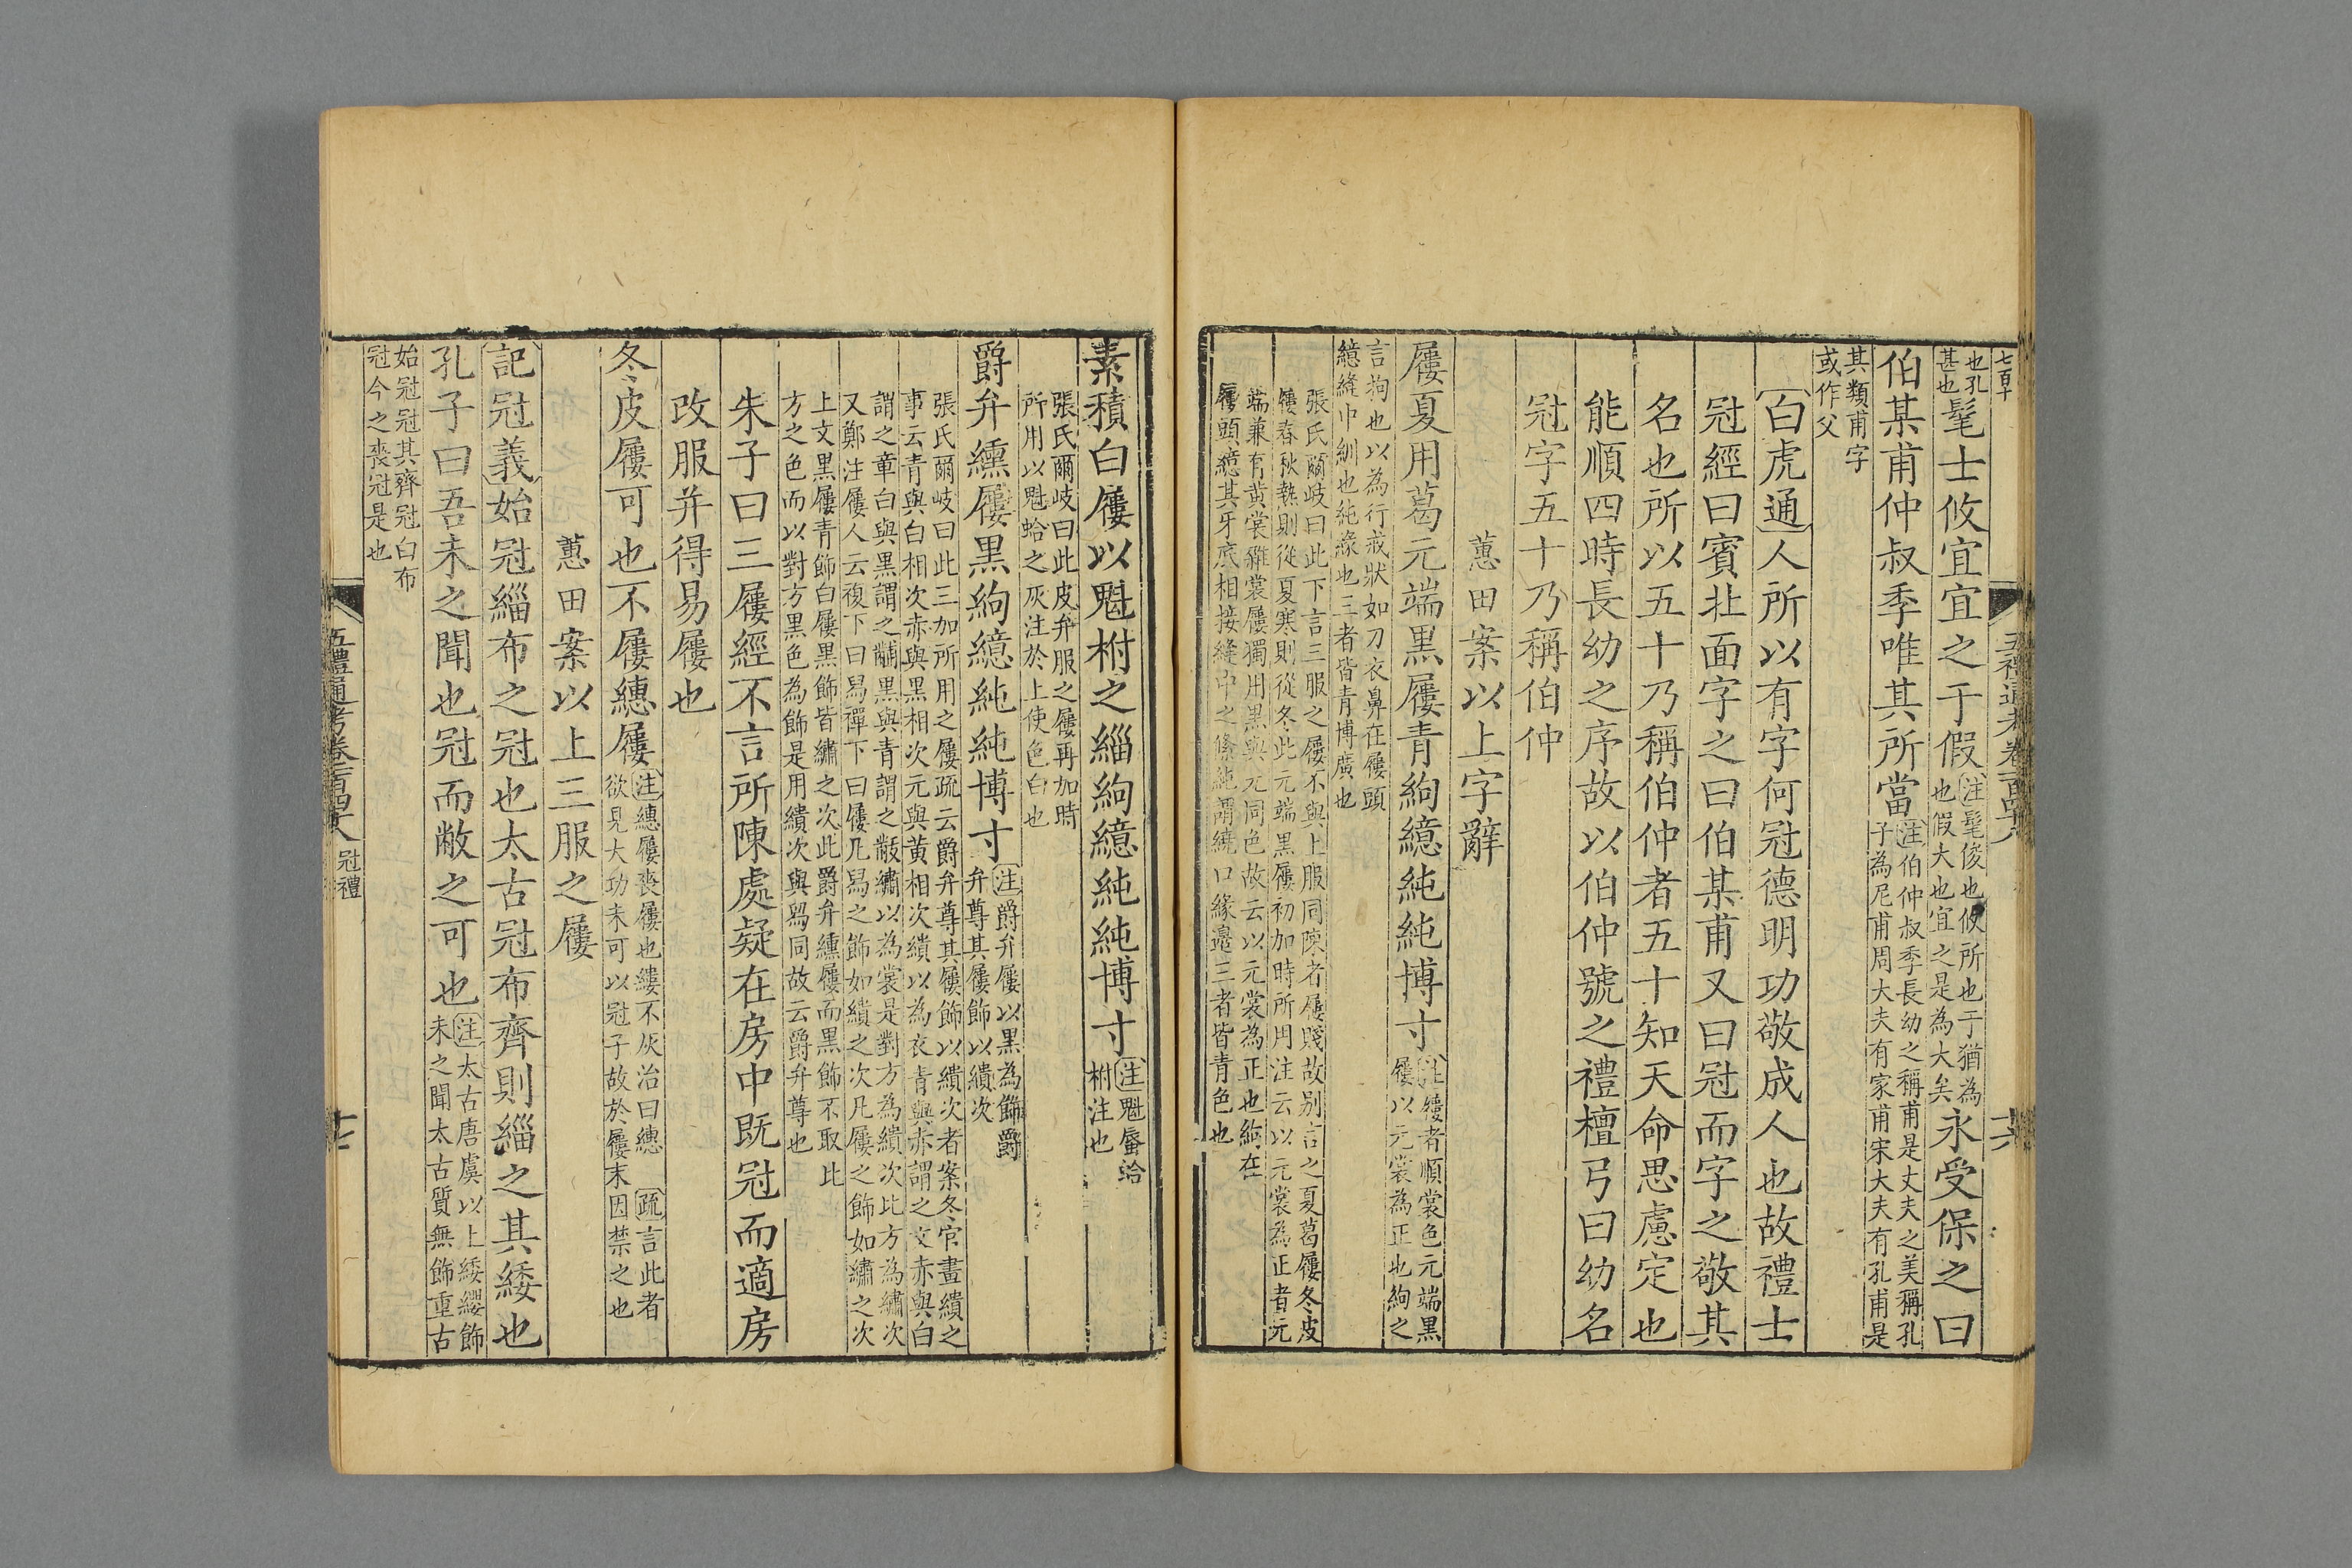 七百十
五禮通考卷一百四十八
十六
也孔
甚也
髦士攸宜宜之于假
注髦俊也攸所也于猶為
也假大也宜之是為大矣
永受保之曰
伯某甫仲叔季唯其所當
注伯仲叔季長幼之稱甫是丈夫之美稱孔
子為尼甫周大夫有家甫宋大夫有孔甫是
其類甫字
或作父
白虎通人所以有字何冠德明功敬成人也故禮士
冠經曰賓北面字之曰伯某甫又曰冠而字之敬其
名也所以五十乃稱伯仲者五十知天命思慮定也
能順四時長幼之序故以伯仲號之禮檀弓曰幼名
冠字五十乃稱伯仲
蕙田案以上字辭
屨夏用葛元端黑屨青絇繶純純博寸
注屨者順裳色元端黑
屨以元裳為正也絇之
言拘也以為行戒狀如刀衣鼻在屨頭
繶縫中紃也純緣也三者皆青博廣也
張氏爾岐曰此下言三服之屨不與上服同陳者屨賤故别言之夏葛屨冬皮
屨春秋熱則從夏寒則從冬此元端黑屨初加時所用注云以元裳為正者元
端兼有黄裳雜裳屨獨用黑與元同色故云以元裳為正也絇在
屨頭繶其牙底相接縫中之絛純謂繞口緣邊三者皆青色也
素積白屨以魁柎之緇絇繶純純博寸
注魁蜃蛤
柎注也
張氏爾岐曰此皮弁服之屨再加時
所用以魁蛤之灰注於上使色白也
爵弁纁屨黑絇繶純純博寸
注爵弁屨以黑為飾爵
弁尊其屨飾以繢次
張氏爾岐曰此三加所用之屨疏云爵弁尊其屨飾以繢次者案冬官畫繢之
事云青與白相次赤與黑相次元與黄相次繢以為衣青與赤謂之文赤與白
謂之章白與黑謂之黼黑與青謂之黻繡以為裳是對方為繢次比方為繡次
又鄭注屨人云複下曰舄禪下曰屨凡舄之飾如繢之次凡屨之飾如繡之次
上文黑屨青飾白屨黑飾皆繡之次此爵弁纁屨而黑飾不取此
方之色而以對方黑色為飾是用繢次與舄同故云爵弁尊也
朱子曰三屨經不言所陳處疑在房中既冠而適房
改服并得易屨也
冬皮屨可也不屨繐屨
注繐屨喪屨也縷不灰治曰繐 疏言此者
欲見大功未可以冠子故於屨末因禁之也
蕙田案以上三服之屨
記冠義始冠緇布之冠也太古冠布齊則緇之其緌也
孔子曰吾未之聞也冠而敝之可也
注太古唐虞以上緌纓飾
未之聞太古質無飾重古
始冠冠其齊冠白布
冠今之喪冠是也
五禮通考卷一百四十八
冠禮
十七